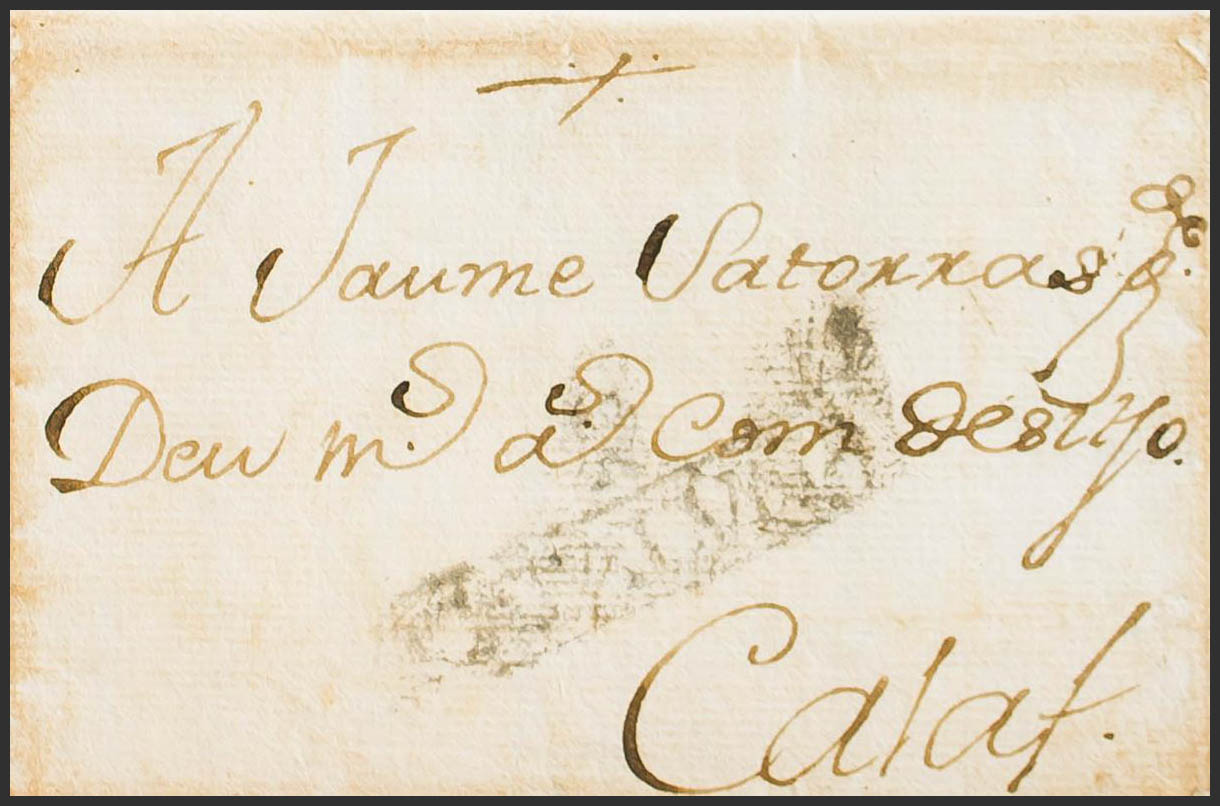 A Jaume Satorras q.
Deu m.s a.s Com desitjo.
Calaf.